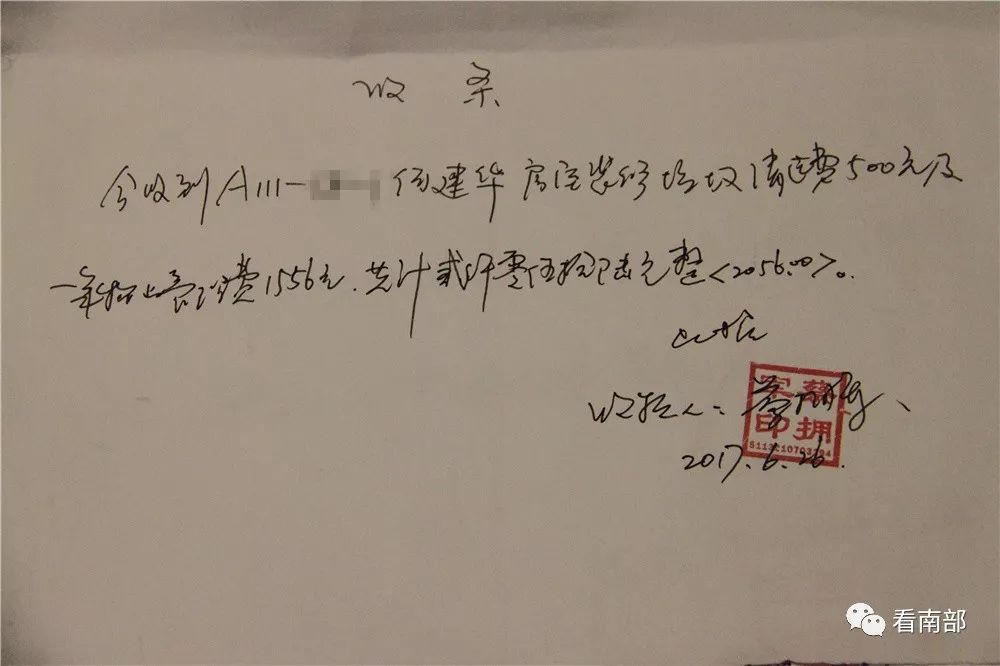 收 条
今收到A111- 建华 房屋装修垃圾清运费500元及
一年物业管理费1556元.共计贰仟零伍拾陆元整<2056.00>。
此据
收款人:
印 拥
2017.6.26.
看南部